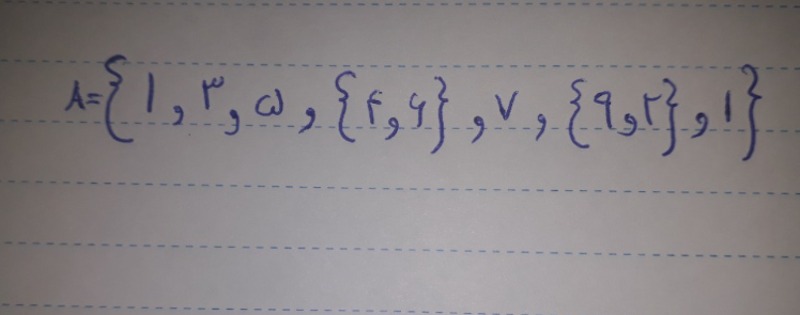 A={۱,۳,۵,{۴,۶},۷,{۹,۲},۱}